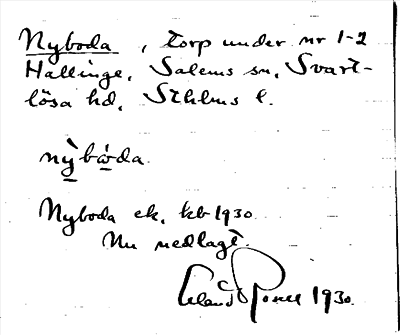 Nyboda, torp under nr 1-2
Hallinge, Salems sn, Svart-
lösa hd, Sthlms l.
nỳbóda
Nyboda ek. kb 1930.
Nu nedlagt.
Erland Rosell 1930.